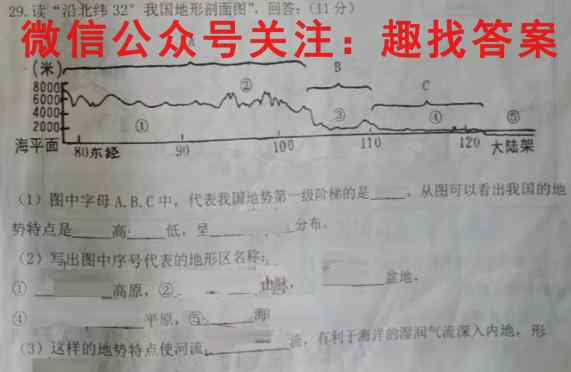 29.读“沿北纬32°我国地形剖面图”,回答:(11分)
微信公众号关注:趣找答案
(米)
A
B
C
8000
6000
4000
2000
海平面
①
②
③
④
⑤
80东经
90
100
110
120
大陆架
(1)图中字母A.B.C中,代表我国地势第一级阶梯的是____。从图可以看出我国的地
势特点是____高____低,呈________分布。
(2)写出图中序号代表的地形区名称:
①________高原,②________山脉,________盆地,
④________平原,⑤________海
(3)这样的地势特点使河流________流,有利于海洋的湿润气流深入内地,形